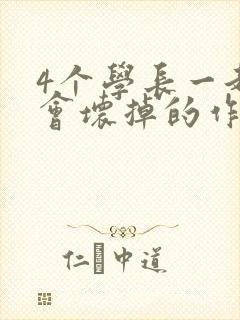 4个學長一起
會壞掉的作
仁中道